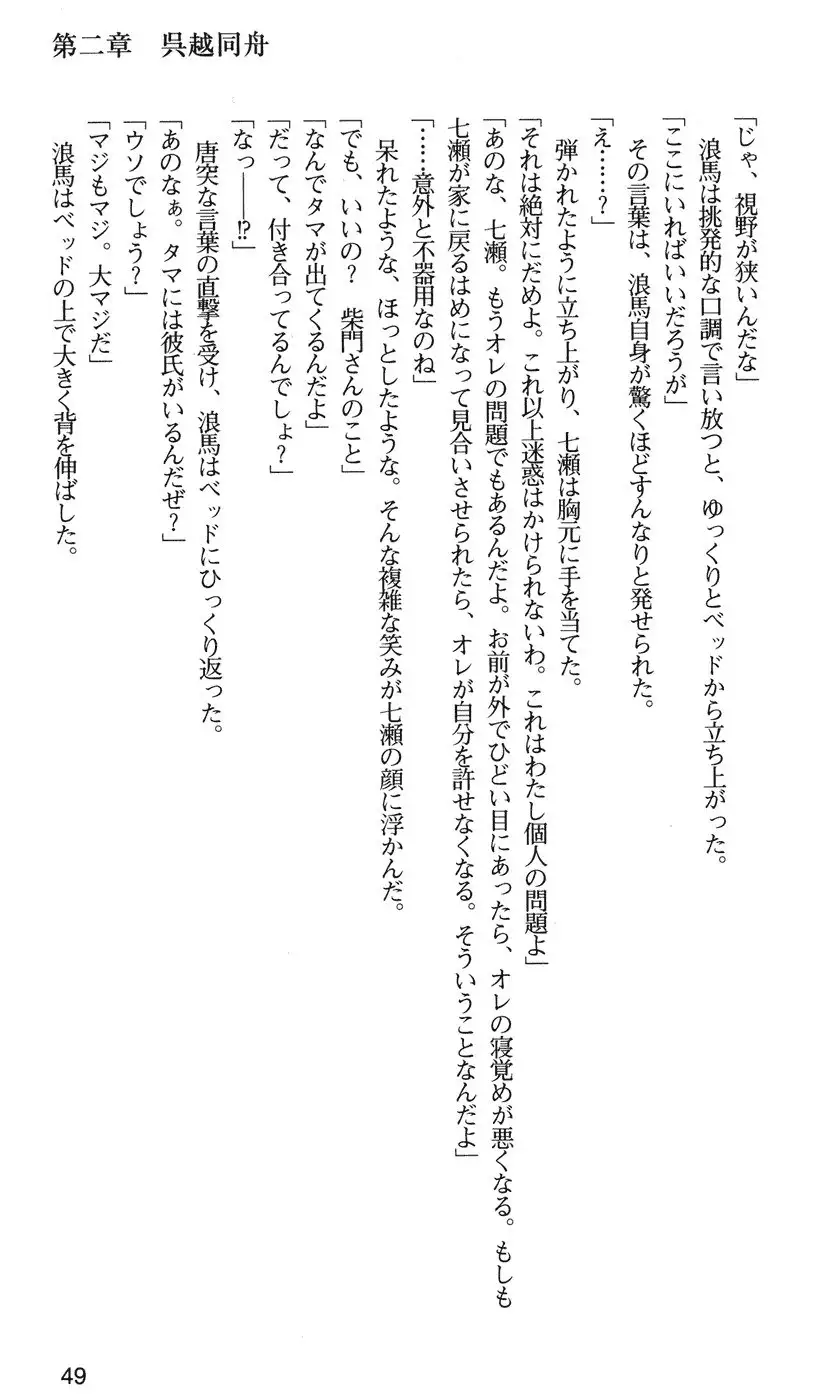 第二章　呉越同舟
「じゃ、視野が狭いんだな」
　浪馬は挑発的な口調で言い放つと、ゆっくりとベッドから立ち上がった。
「ここにいればいいだろうが」
　その言葉は、浪馬自身が驚くほどすんなりと発せられた。
「え……？」
　弾かれたように立ち上がり、七瀬は胸元に手を当てた。
「それは絶対にだめよ。これ以上迷惑はかけられないわ。これはわたし個人の問題よ」
「あのな、七瀬。もうオレの問題でもあるんだよ。お前が外でひどい目にあったら、オレの寝覚めが悪くなる。もしも
七瀬が家に戻るはめになって見合いさせられたら、オレが自分を許せなくなる。そういうことなんだよ」
「……意外と不器用なのね」
　呆れたような、ほっとしたような。そんな複雑な笑みが七瀬の顔に浮かんだ。
「でも、いいの？　柴門さんのこと」
「なんでタマが出てくるんだよ」
「だって、付き合ってるんでしょ？」
「なっ――!?」
　唐突な言葉の直撃を受け、浪馬はベッドにひっくり返った。
「あのなぁ。タマには彼氏がいるんだぜ？」
「ウソでしょう？」
「マジもマジ。大マジだ」
　浪馬はベッドの上で大きく背を伸ばした。
49